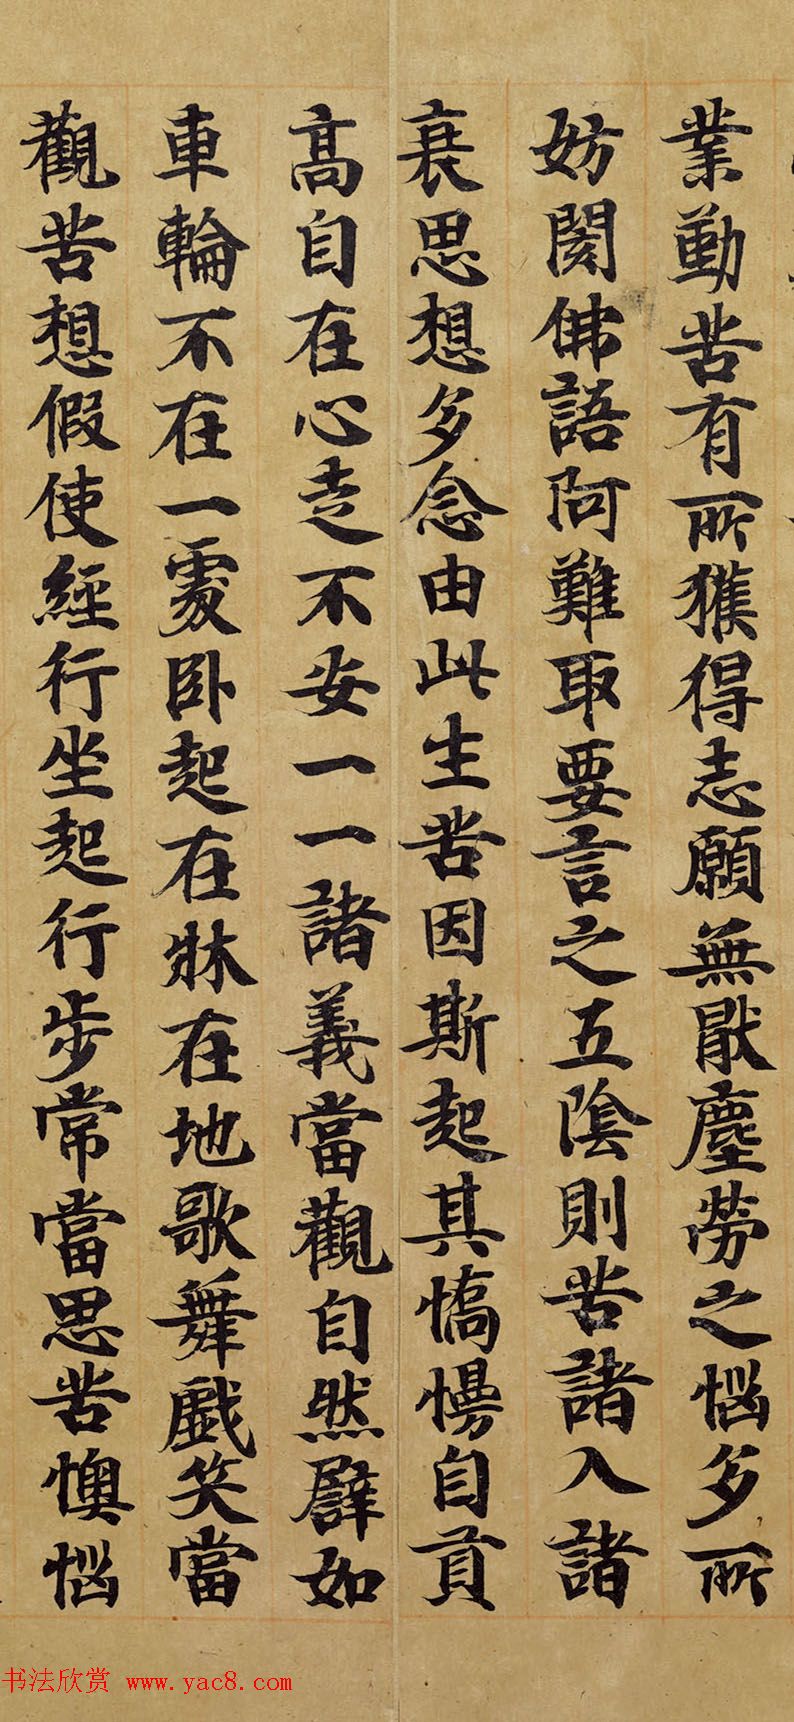 業勤苦有所獲得志願無猒塵勞之惱多所
妨閡佛語阿難取要言之五陰則苦諸入諸
衰思想多念由此生苦因斯起其憍慢自貢
高自在心走不安一一諸義當觀自然譬如
車輪不在一處卧起在牀在地歌舞戲笑當
觀苦想假使經行坐起行步常當思苦懊惱
书法欣赏 www.yac8.com